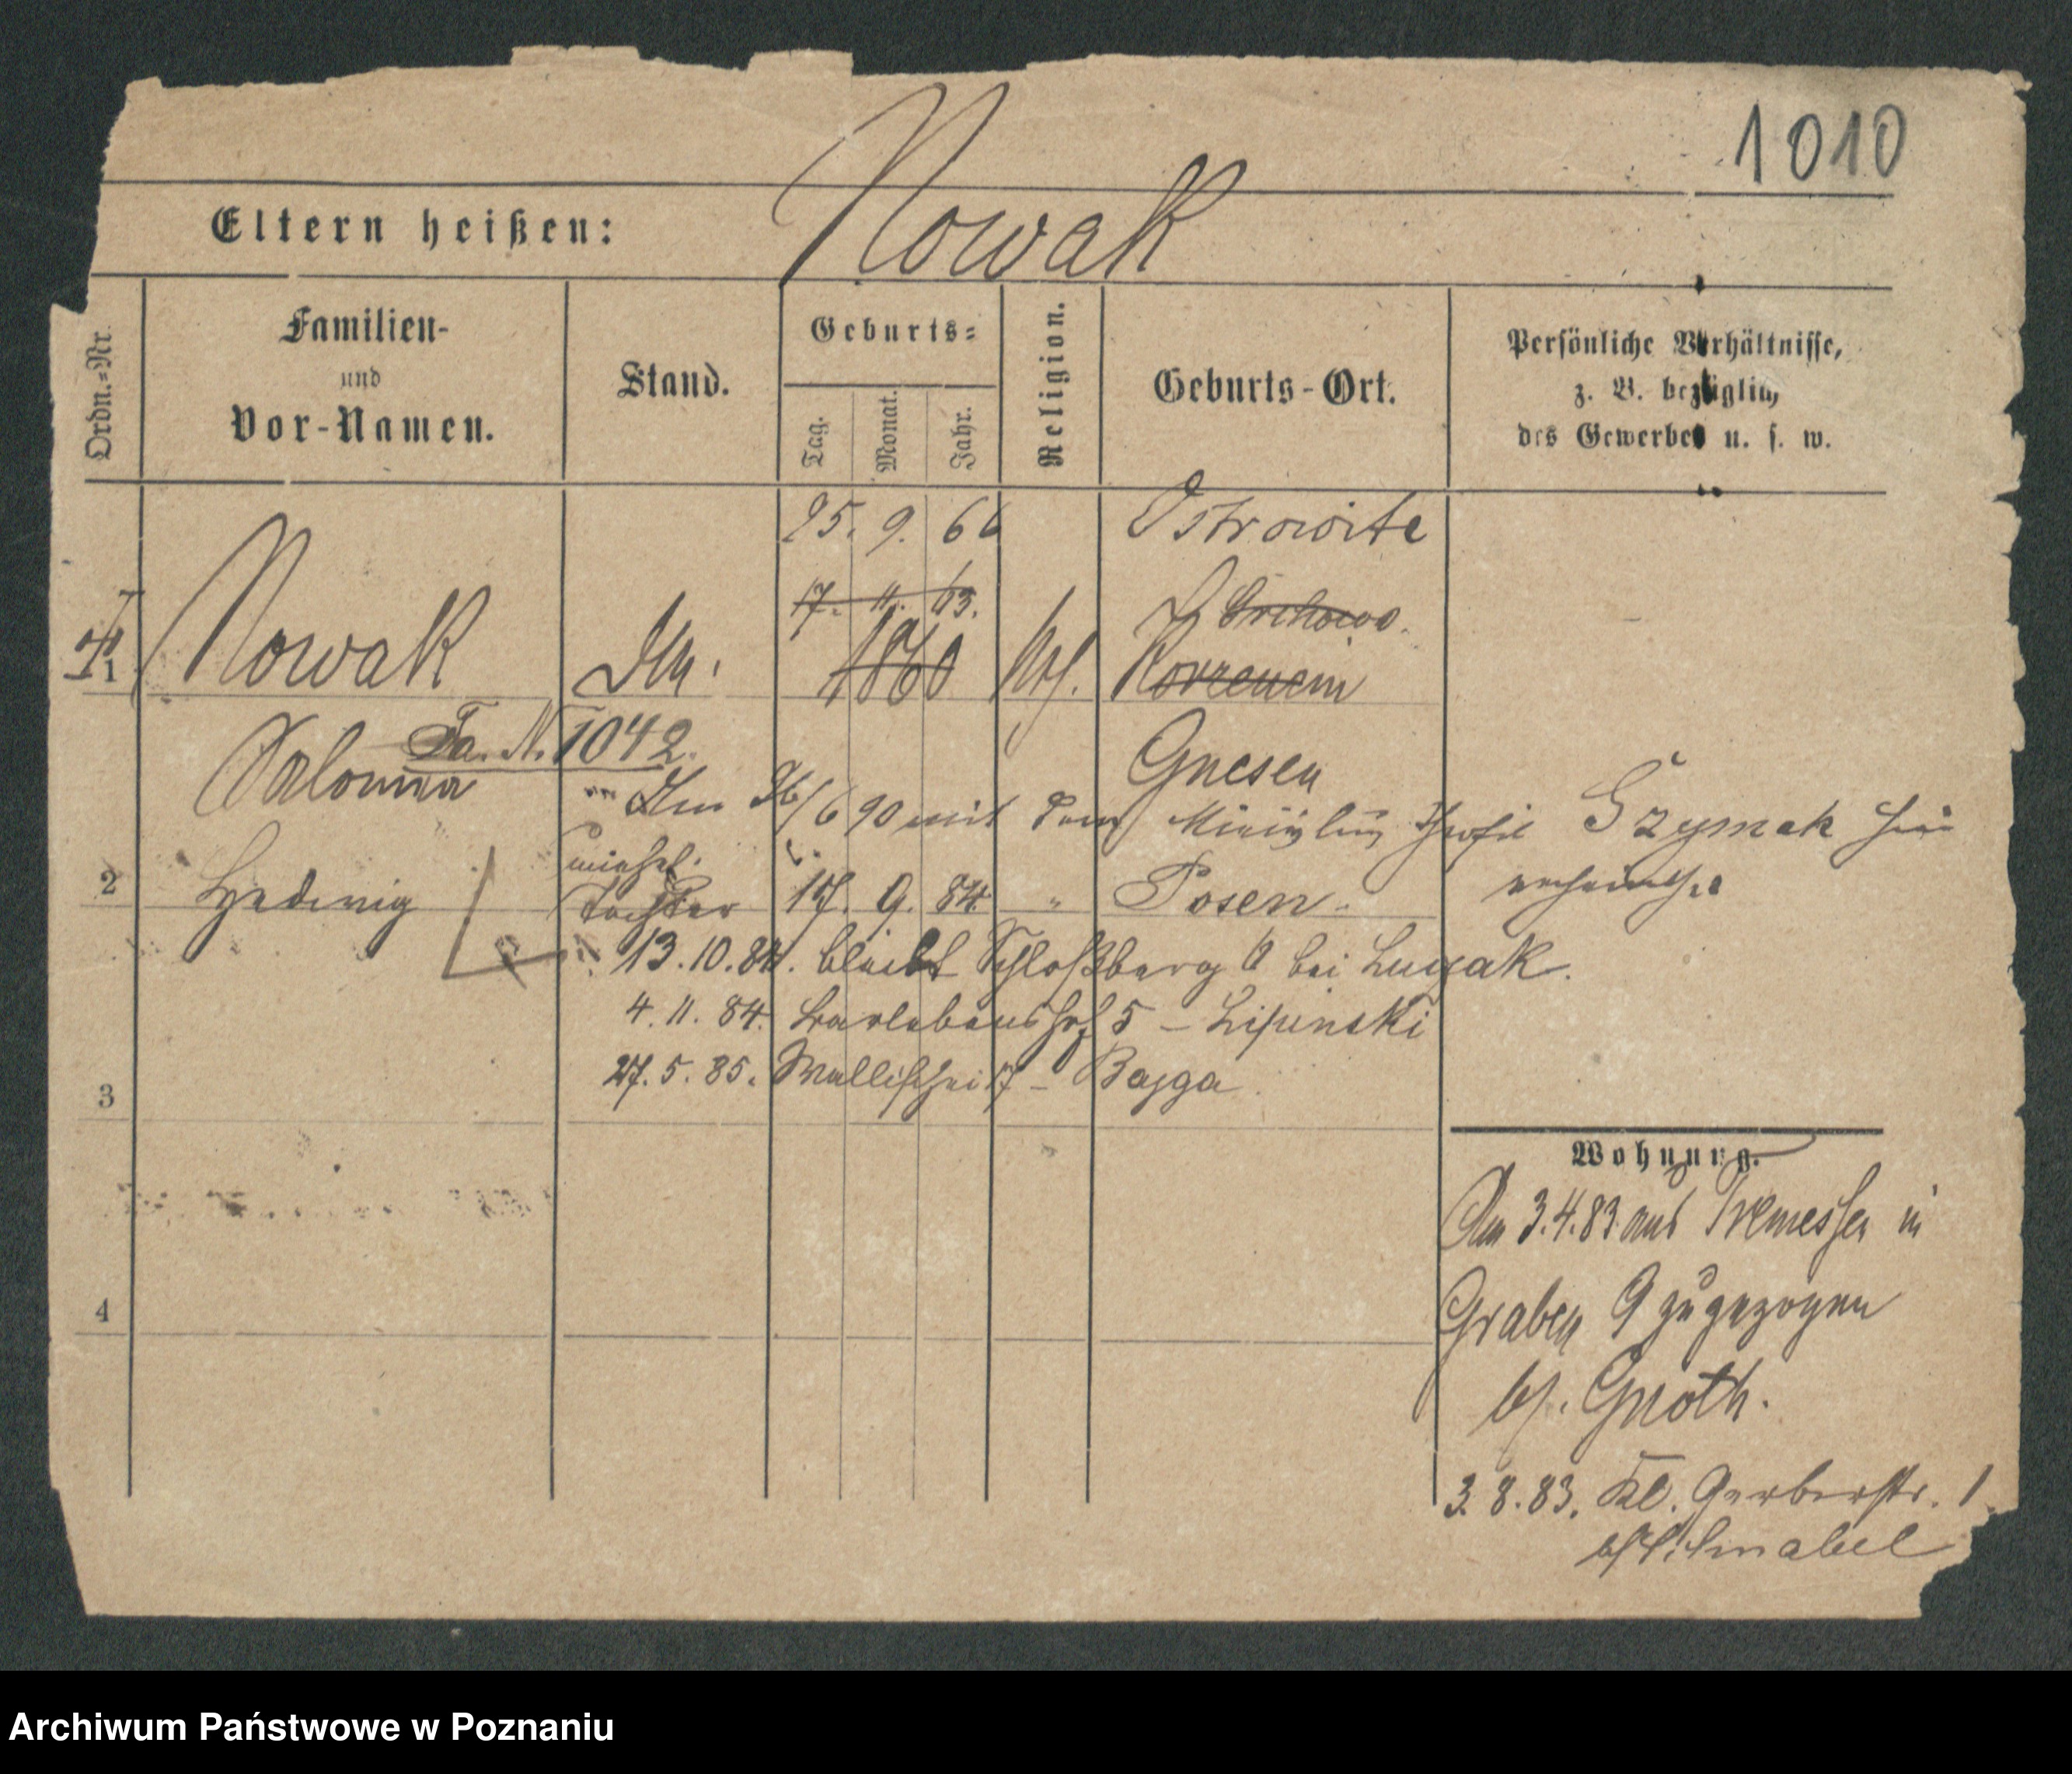 1010
Eltern heißen: Nowak
Ordn.-Nr.
Familien-
und
Vor-Namen.
Stand.
Geburts-
Tag.
Monat.
Jahr.
Religion.
Geburts-Ort.
Persönliche Verhältnisse,
z. B. bezüglich
des Gewerbes u. s. w.
25. 9. 66 Ostrowite
17. 11. 63. Orchowo.
1 Nowak 1860 Korzenein
Fa. N. 1042 Gnesen
Salomea
26/6 90 mit dem Szymak
unehel.
2 Hedwig Tochter 17. 9. 84 " Posen
13.10.84. bleibt Schloßberg 6 bei
4. 11. 84. Barlebenshof 5 – Lipinski
27. 5. 85. Wallischei 17 – Bajga
3
4
Wohnung.
Am 3.4.83 aus Tremessen in
Graben 9 zugezogen
bf. Gnoth.
3. 8. 83. Kl. Gerberstr. 1
Schnabel
Archiwum Państwowe w Poznaniu